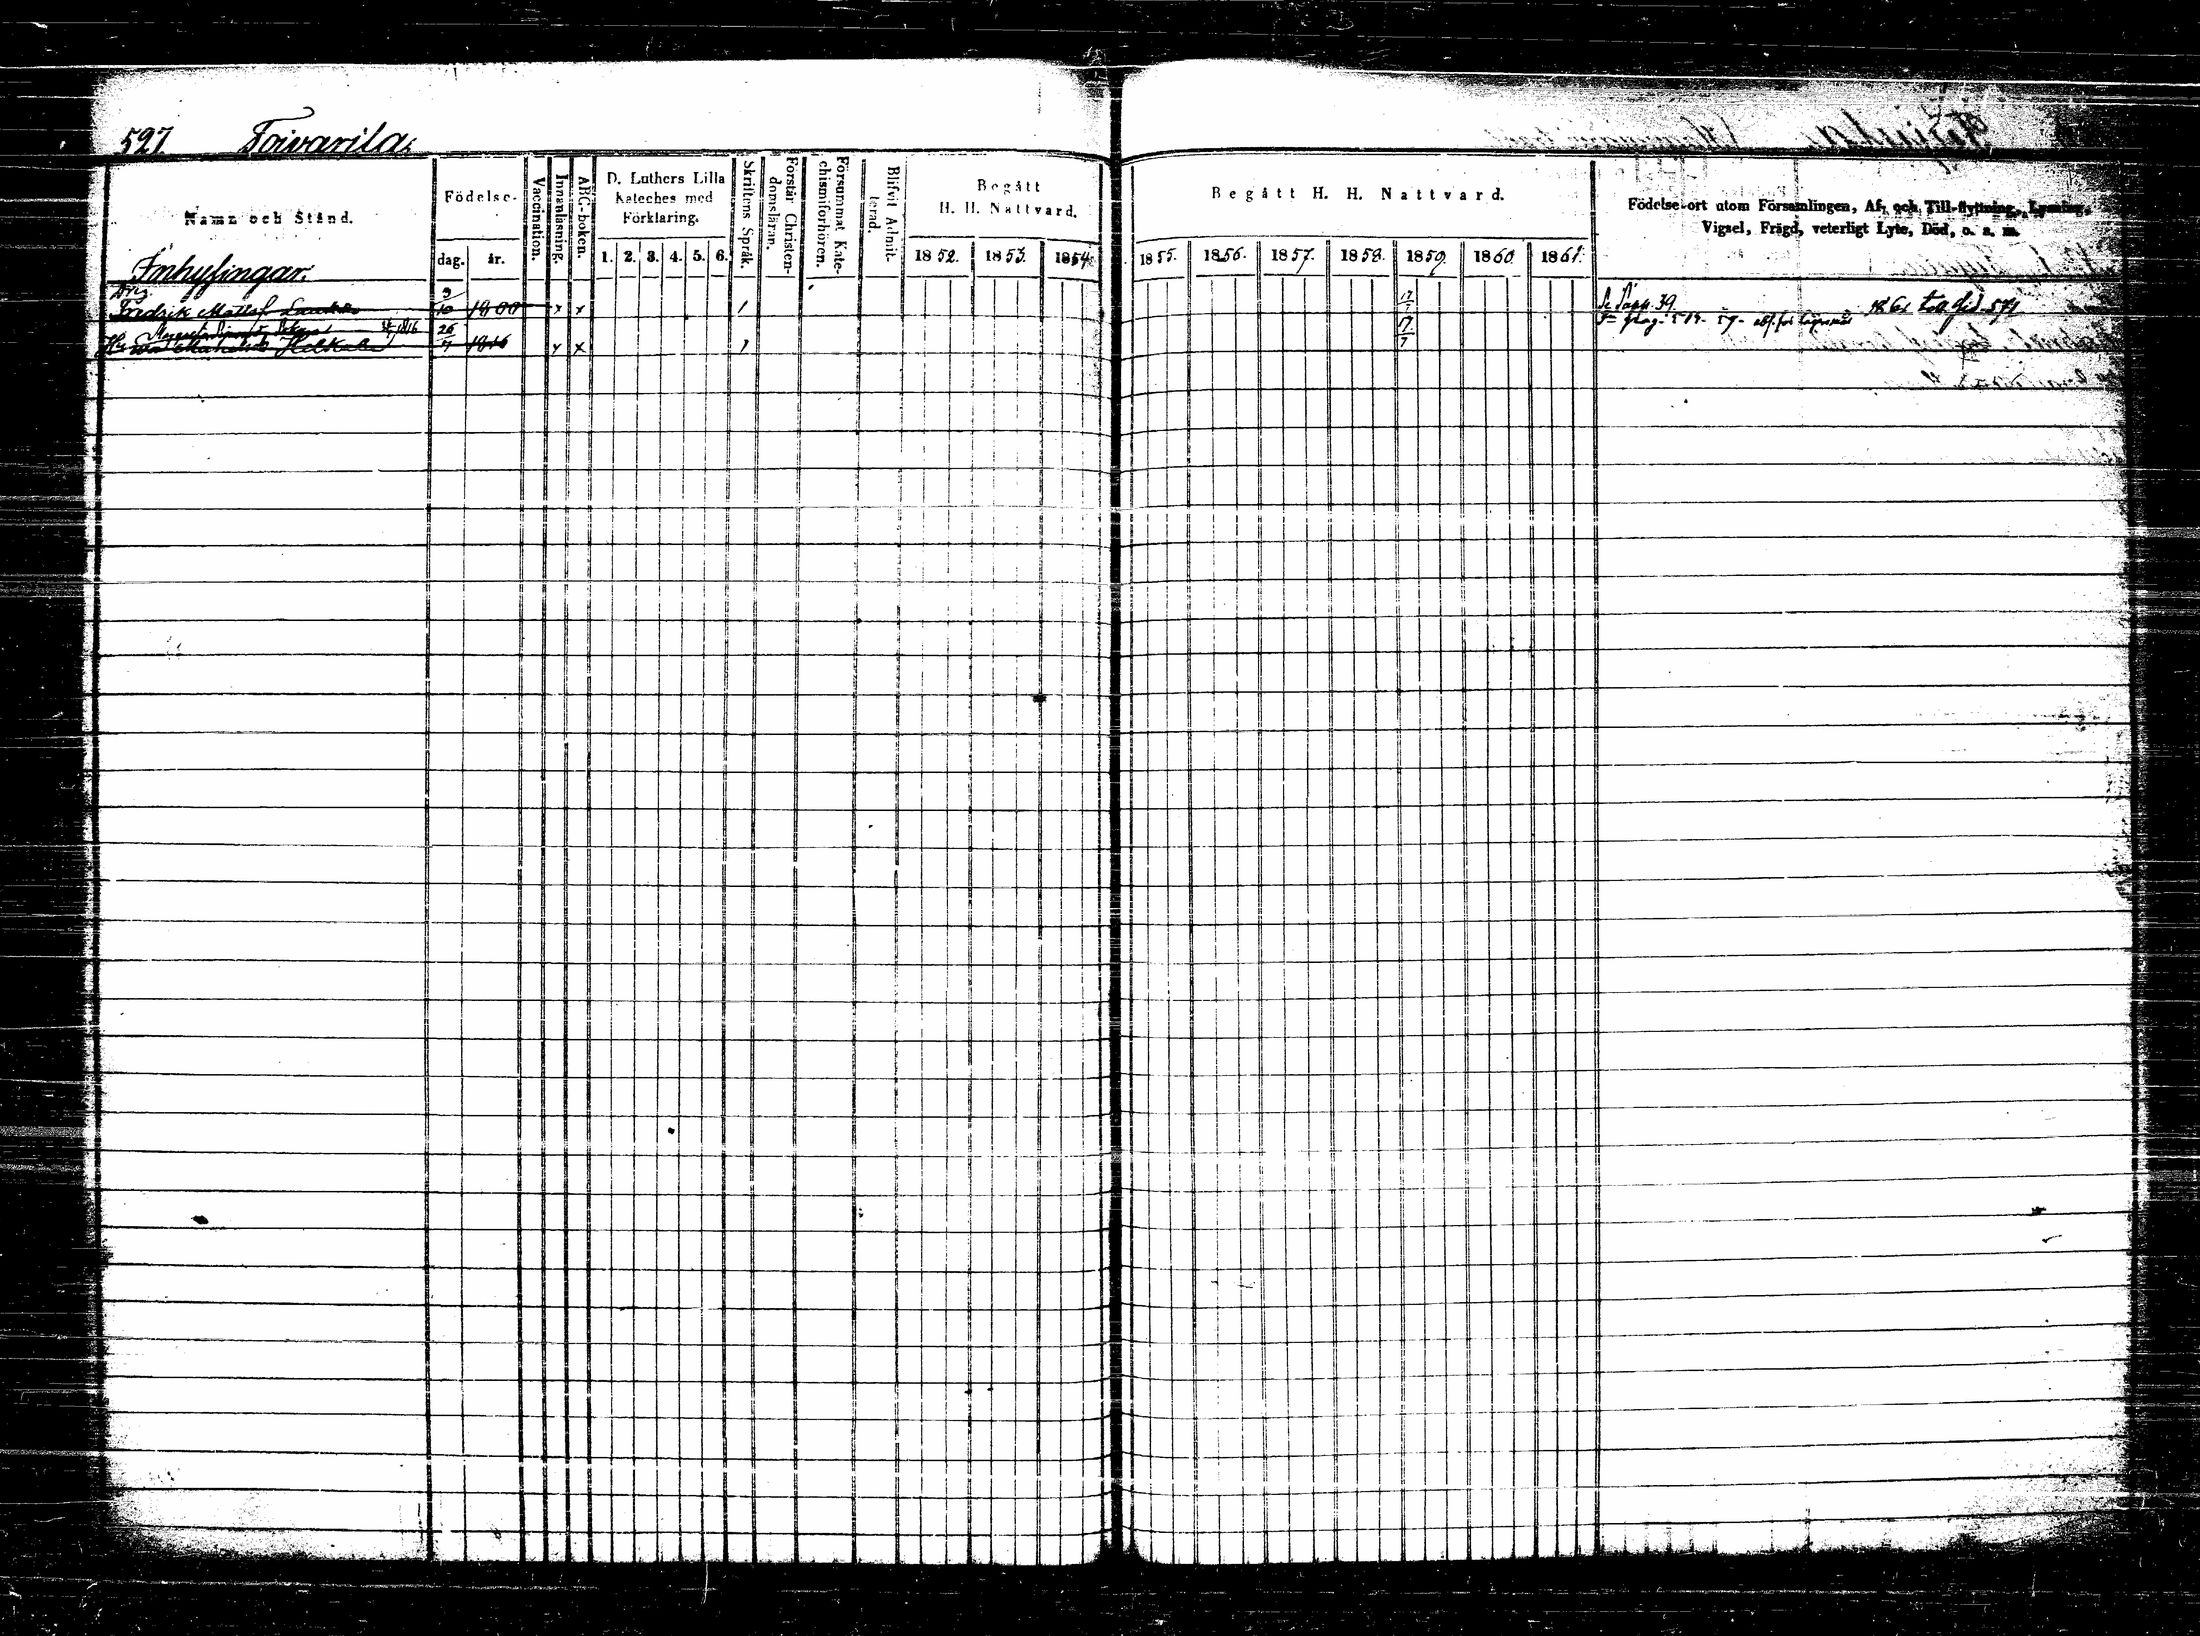 527 Toivarila
Namn och Stånd.
Födelse-
dag. år.
Vaccination.
Innanläsning.
ABC-boken.
D. Luthers Lilla
Kateches med
Förklaring.
1. 2. 3. 4. 5. 6.
Skriftens Språk.
Förstår Christen-
domsläran.
Försummat Kate-
chismiförhören.
Blifvit Admit-
terad.
Begått
H. H. Nattvard.
1852. 1853. 1854.
Begått H. H. Nattvard.
1855. 1856. 1857. 1858. 1859. 1860 1861.
Födelse-ort utom Församlingen, Af- och Till-flyttning, Lysning,
Vigsel, Frägd, veterligt Lyte, Död, o. s. m.
Inhysingar.
Fredrik Mattss. 10 1800 x x 17 Se 39. 1861 574
26 7 1816 x x 17 7